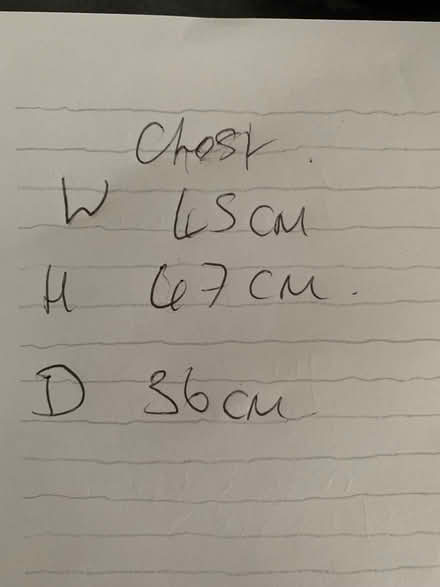 Chest.
W 45 CM
H 47 CM.
D 36 CM